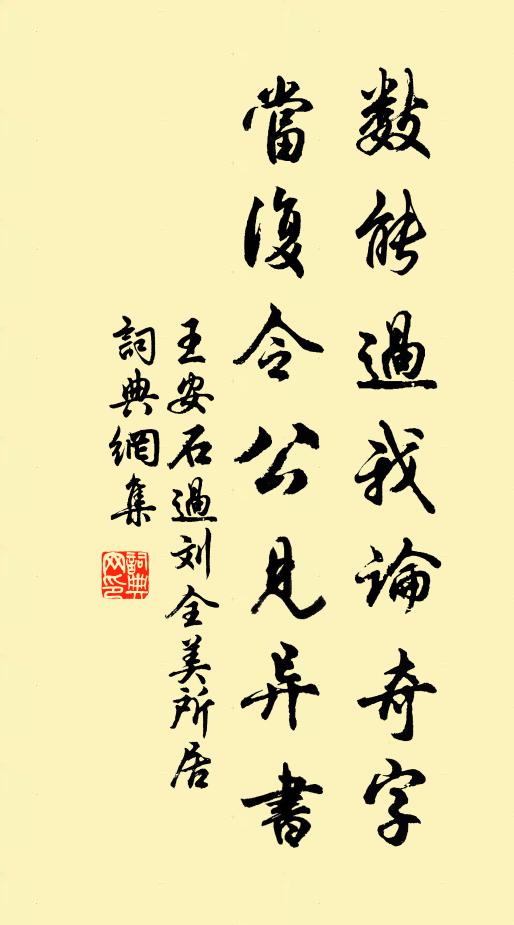 數能過我論奇字
當復令公見异書
王安石過刘全美所居
詞典網集
詞典網印